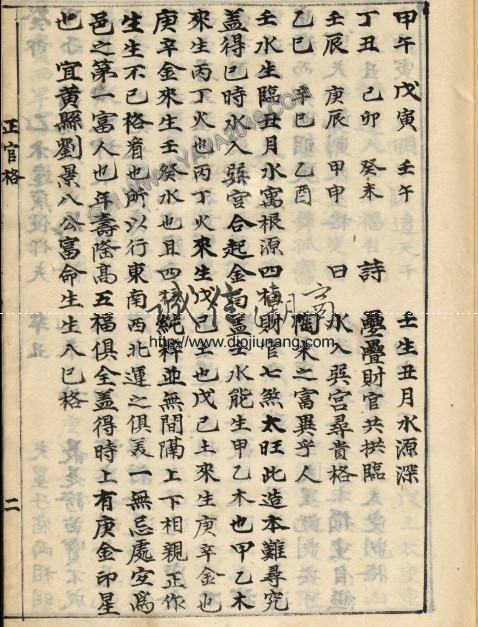 甲午 戊寅 壬午 壬生丑月水源深
丁丑 己卯 癸未 詩 疊疊財官共拱臨
壬辰 庚辰 甲申 曰 水入巽宮尋貴格
乙巳 辛巳 乙酉 陶朱之富異乎人
壬水生臨丑月水寓根源四柱財官七煞太旺此造本難尋究
蓋得巳時水入巽宮合起金局蓋壬水能生甲乙木也甲乙木
來生丙丁火也丙丁火來生戊己土也戊己土來生庚辛金也
庚辛金來生壬癸水也且四柱純粹並無間隔上下相親正作
生生不已格者也所以行東南西北運之俱美一無忌處安爲
邑之第一富人也年壽隆高五福俱全蓋得時上有庚金印星
也 宜黃縣劉景八公富命生生入巳格
正官格
二
誠信
www.diqjiupang.com